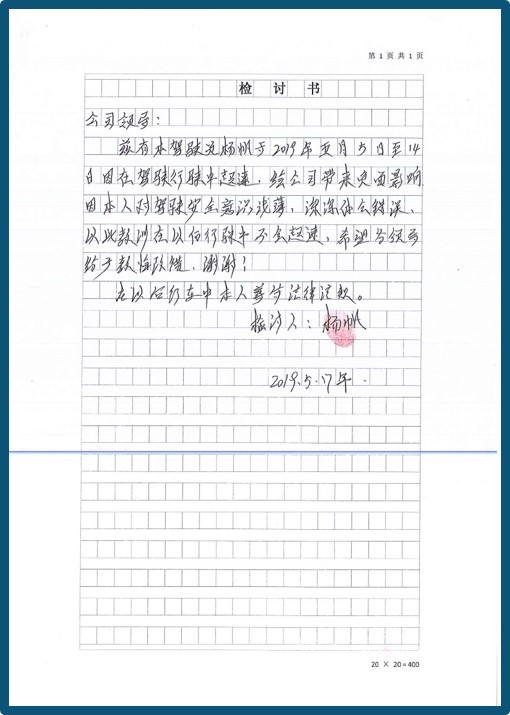 第 1 页 共 1 页
检 讨 书
公司领导：
兹有本驾驶员杨帆于2019年五月5日至14
日因在驾驶行驶中超速，给公司带来负面影响
因本人对驾驶安全意识浅薄，深深体会错误、
以此教训在以后行驶中不会超速，希望各领导
给于教悔改进，谢谢！
在以后行车中本人尊守法律法规。
检讨人：杨帆
2019.5.17年.
20 × 20=400